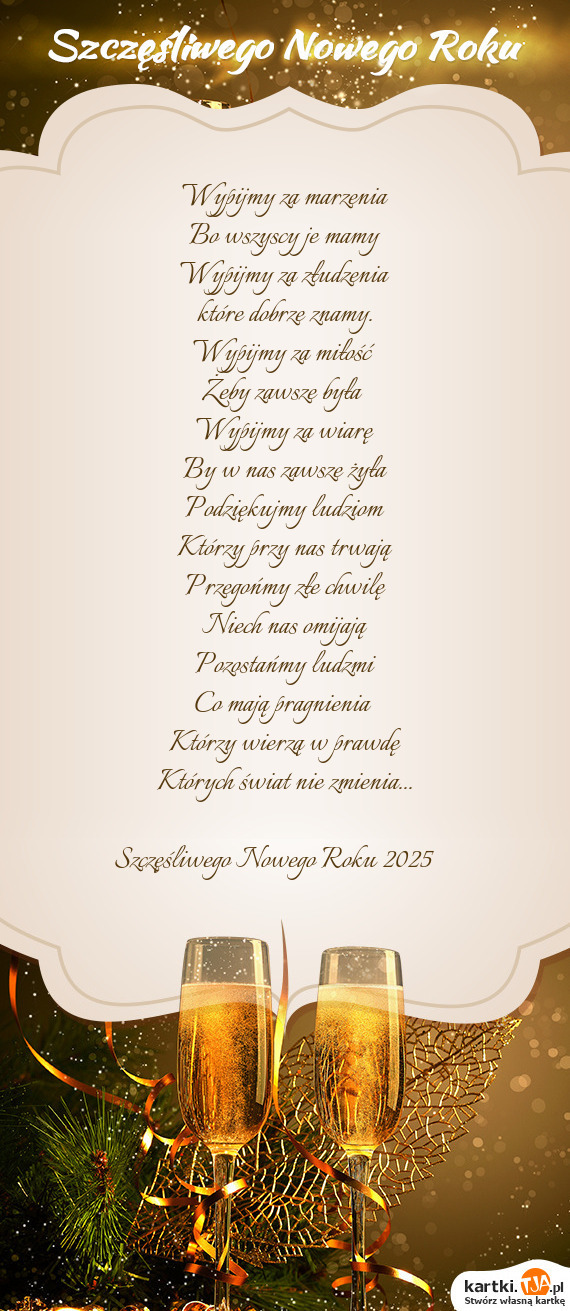 Szczęśliwego Nowego Roku
Wypijmy za marzenia
Bo wszyscy je mamy
Wypijmy za złudzenia
które dobrze znamy.
Wypijmy za miłość
Żeby zawsze była
Wypijmy za wiarę
By w nas zawsze żyła
Podziękujmy ludziom
Którzy przy nas trwają
Przegońmy złe chwilę
Niech nas omijają
Pozostańmy ludzmi
Co mają pragnienia
Którzy wierzą w prawdę
Których świat nie zmienia...
Szczęśliwego Nowego Roku 2025
kartki.TJA.pl
Stwórz własną kartkę